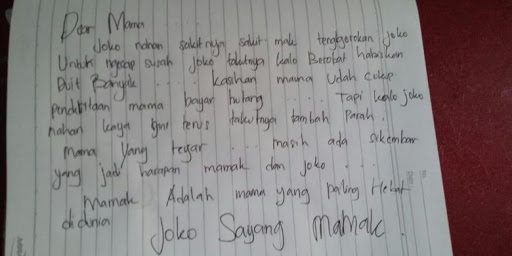 Dear Mama
Joko nahan sakitnya sakit mak tenggorokan joko
Untuk ngecap susah joko takutnya kalo Berobat habiskan
Duit Banyak .... kasihan mama udah cukup
mama bayar hutang .... Tapi kalo joko
nahan kaya gini terus takutnya tambah Parah.
mama Yang tegar .... masih ada sikembar
yang jadi harapan mamak dan joko ...
Mamak Adalah mama yang paling Hebat
di dunia
Joko Sayang Mamak.